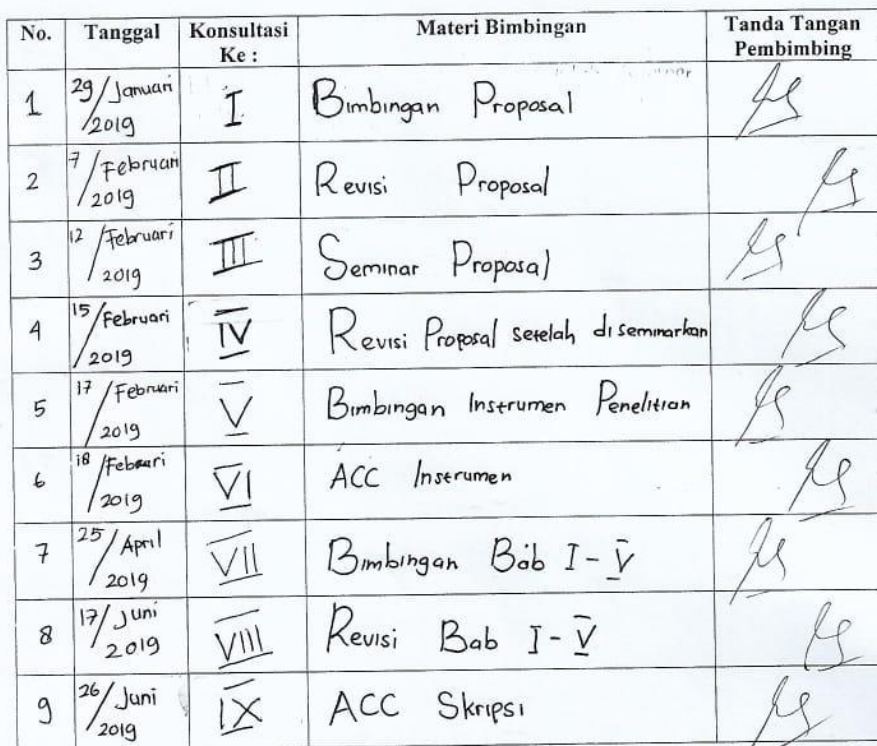 No. Tanggal Konsultasi Ke : Materi Bimbingan Tanda Tangan Pembimbing
1 29/Januari 2019 I Bimbingan Proposal
2 7/Februari 2019 II Revisi Proposal
3 12/Februari 2019 III Seminar Proposal
4 15/Februari 2019 IV Revisi Proposal setelah diseminarkan
5 17/Februari 2019 V Bimbingan Instrumen Penelitian
6 18/Februari 2019 VI ACC Instrumen
7 25/April 2019 VII Bimbingan Bab I - V
8 17/Juni 2019 VIII Revisi Bab I - V
9 26/Juni 2019 IX ACC Skripsi